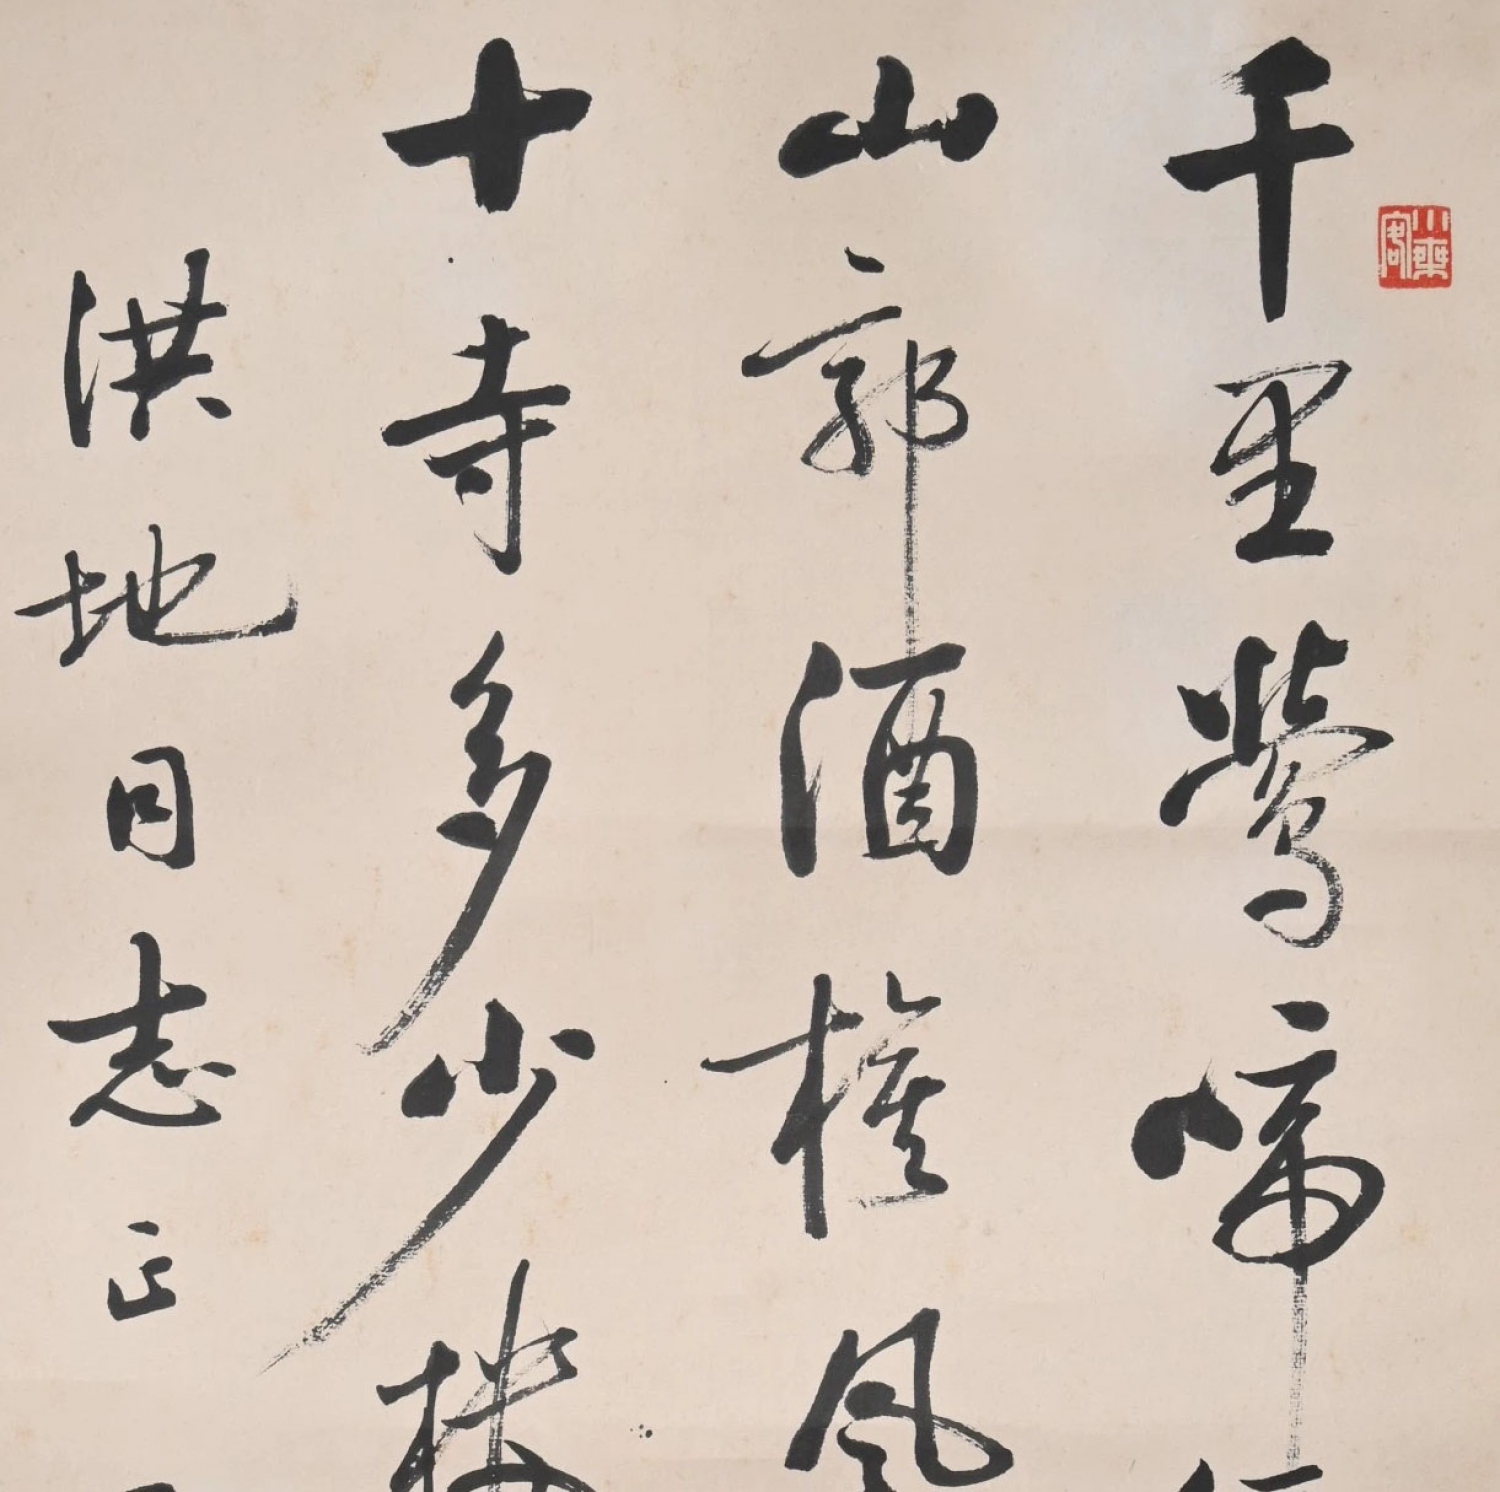 小乘客
千里鶯啼
山郭酒旗風
十寺多少樓
洪地同志正